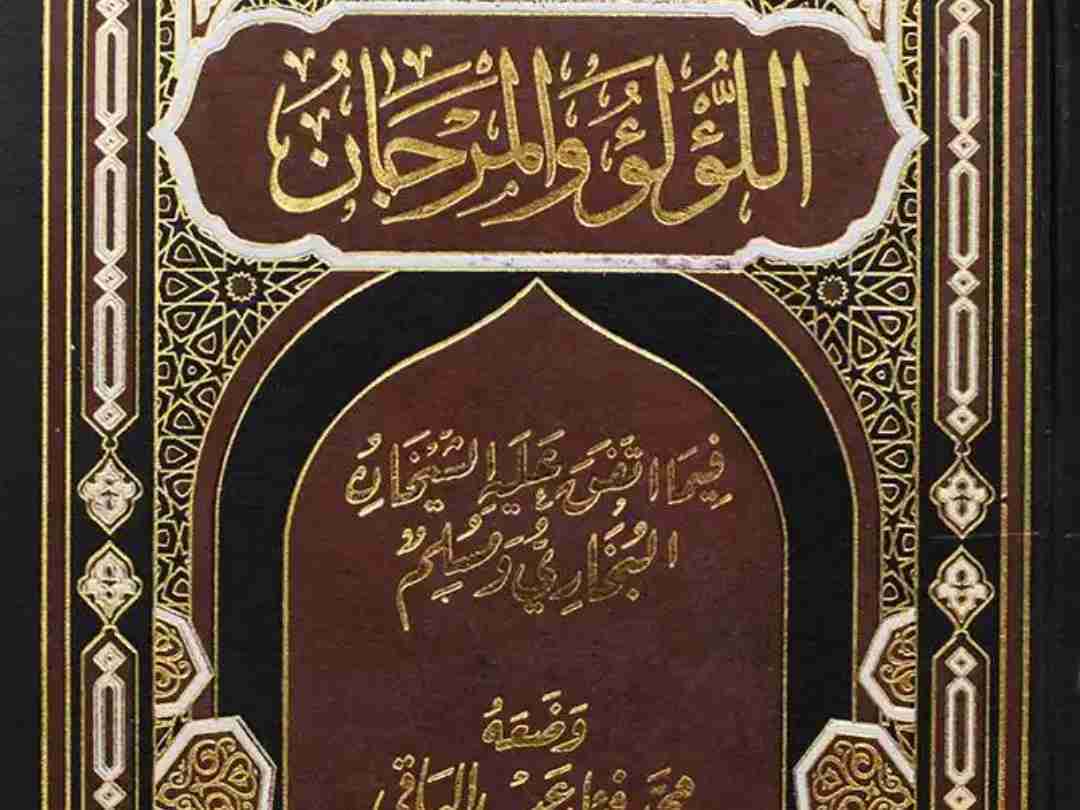 اللُّؤْلُؤُ وَالمَرْجَانُ
فِيمَا اتَّفَقَ عَلَيْهِ الشَّيْخَانِ
البُخَارِيُّ وَمُسْلِمٌ
وَضَعَهُ
محمد فؤاد عبد الباقي